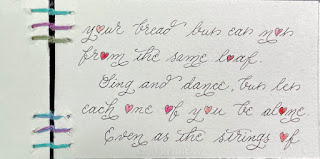 your bread but eat not
from the same loaf.
Sing and dance, but let
each one of you be alone
Even as the strings of